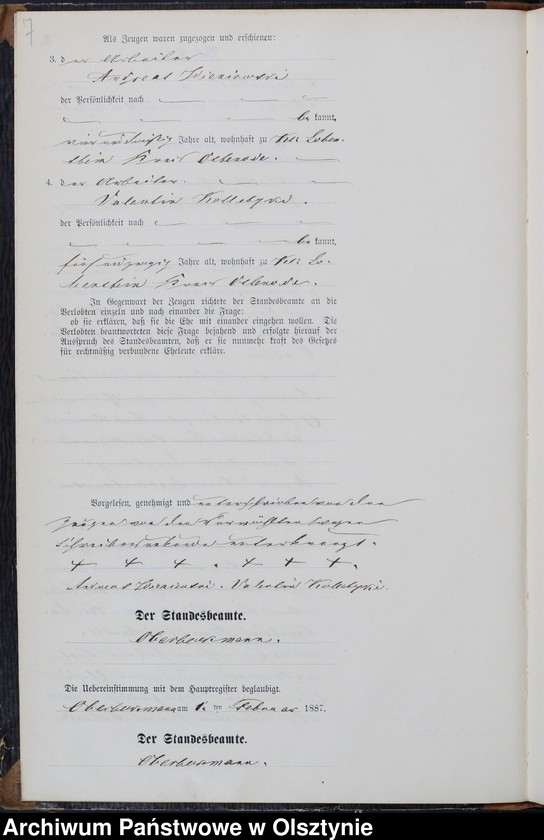 7
Als Zeugen waren zugezogen und erschienen:
3. der Arbeiter
Andreas
der Persönlichkeit nach
be kannt,
vierunddreißig Jahre alt, wohnhaft zu Kl: Loben-
stein Kreis Osterode.
4. der Arbeiter.
Valentin
der Persönlichkeit nach
be kannt,
Jahre alt, wohnhaft zu Kl: Lo-
benstein Kreis Osterode.
In Gegenwart der Zeugen richtete der Standesbeamte an die
Verlobten einzeln und nach einander die Frage:
ob sie erklären, daß sie die Ehe mit einander eingehen wollen. Die
Verlobten beantworteten diese Frage bejahend und erfolgte hierauf der
Ausspruch des Standesbeamten, daß er sie nunmehr kraft des Gesetzes
für rechtmäßig verbundene Eheleute erkläre.
Vorgelesen, genehmigt und unterschrieben von den
Zeugen von den Vermählten wegen
Schreibensunkunde unterkreuzt.
+ + + . + + +.
Andreas . Valentin
Der Standesbeamte.
Die Uebereinstimmung mit dem Hauptregister beglaubigt.
am 1. ten Februar 1887.
Der Standesbeamte.
Archiwum Państwowe w Olsztynie